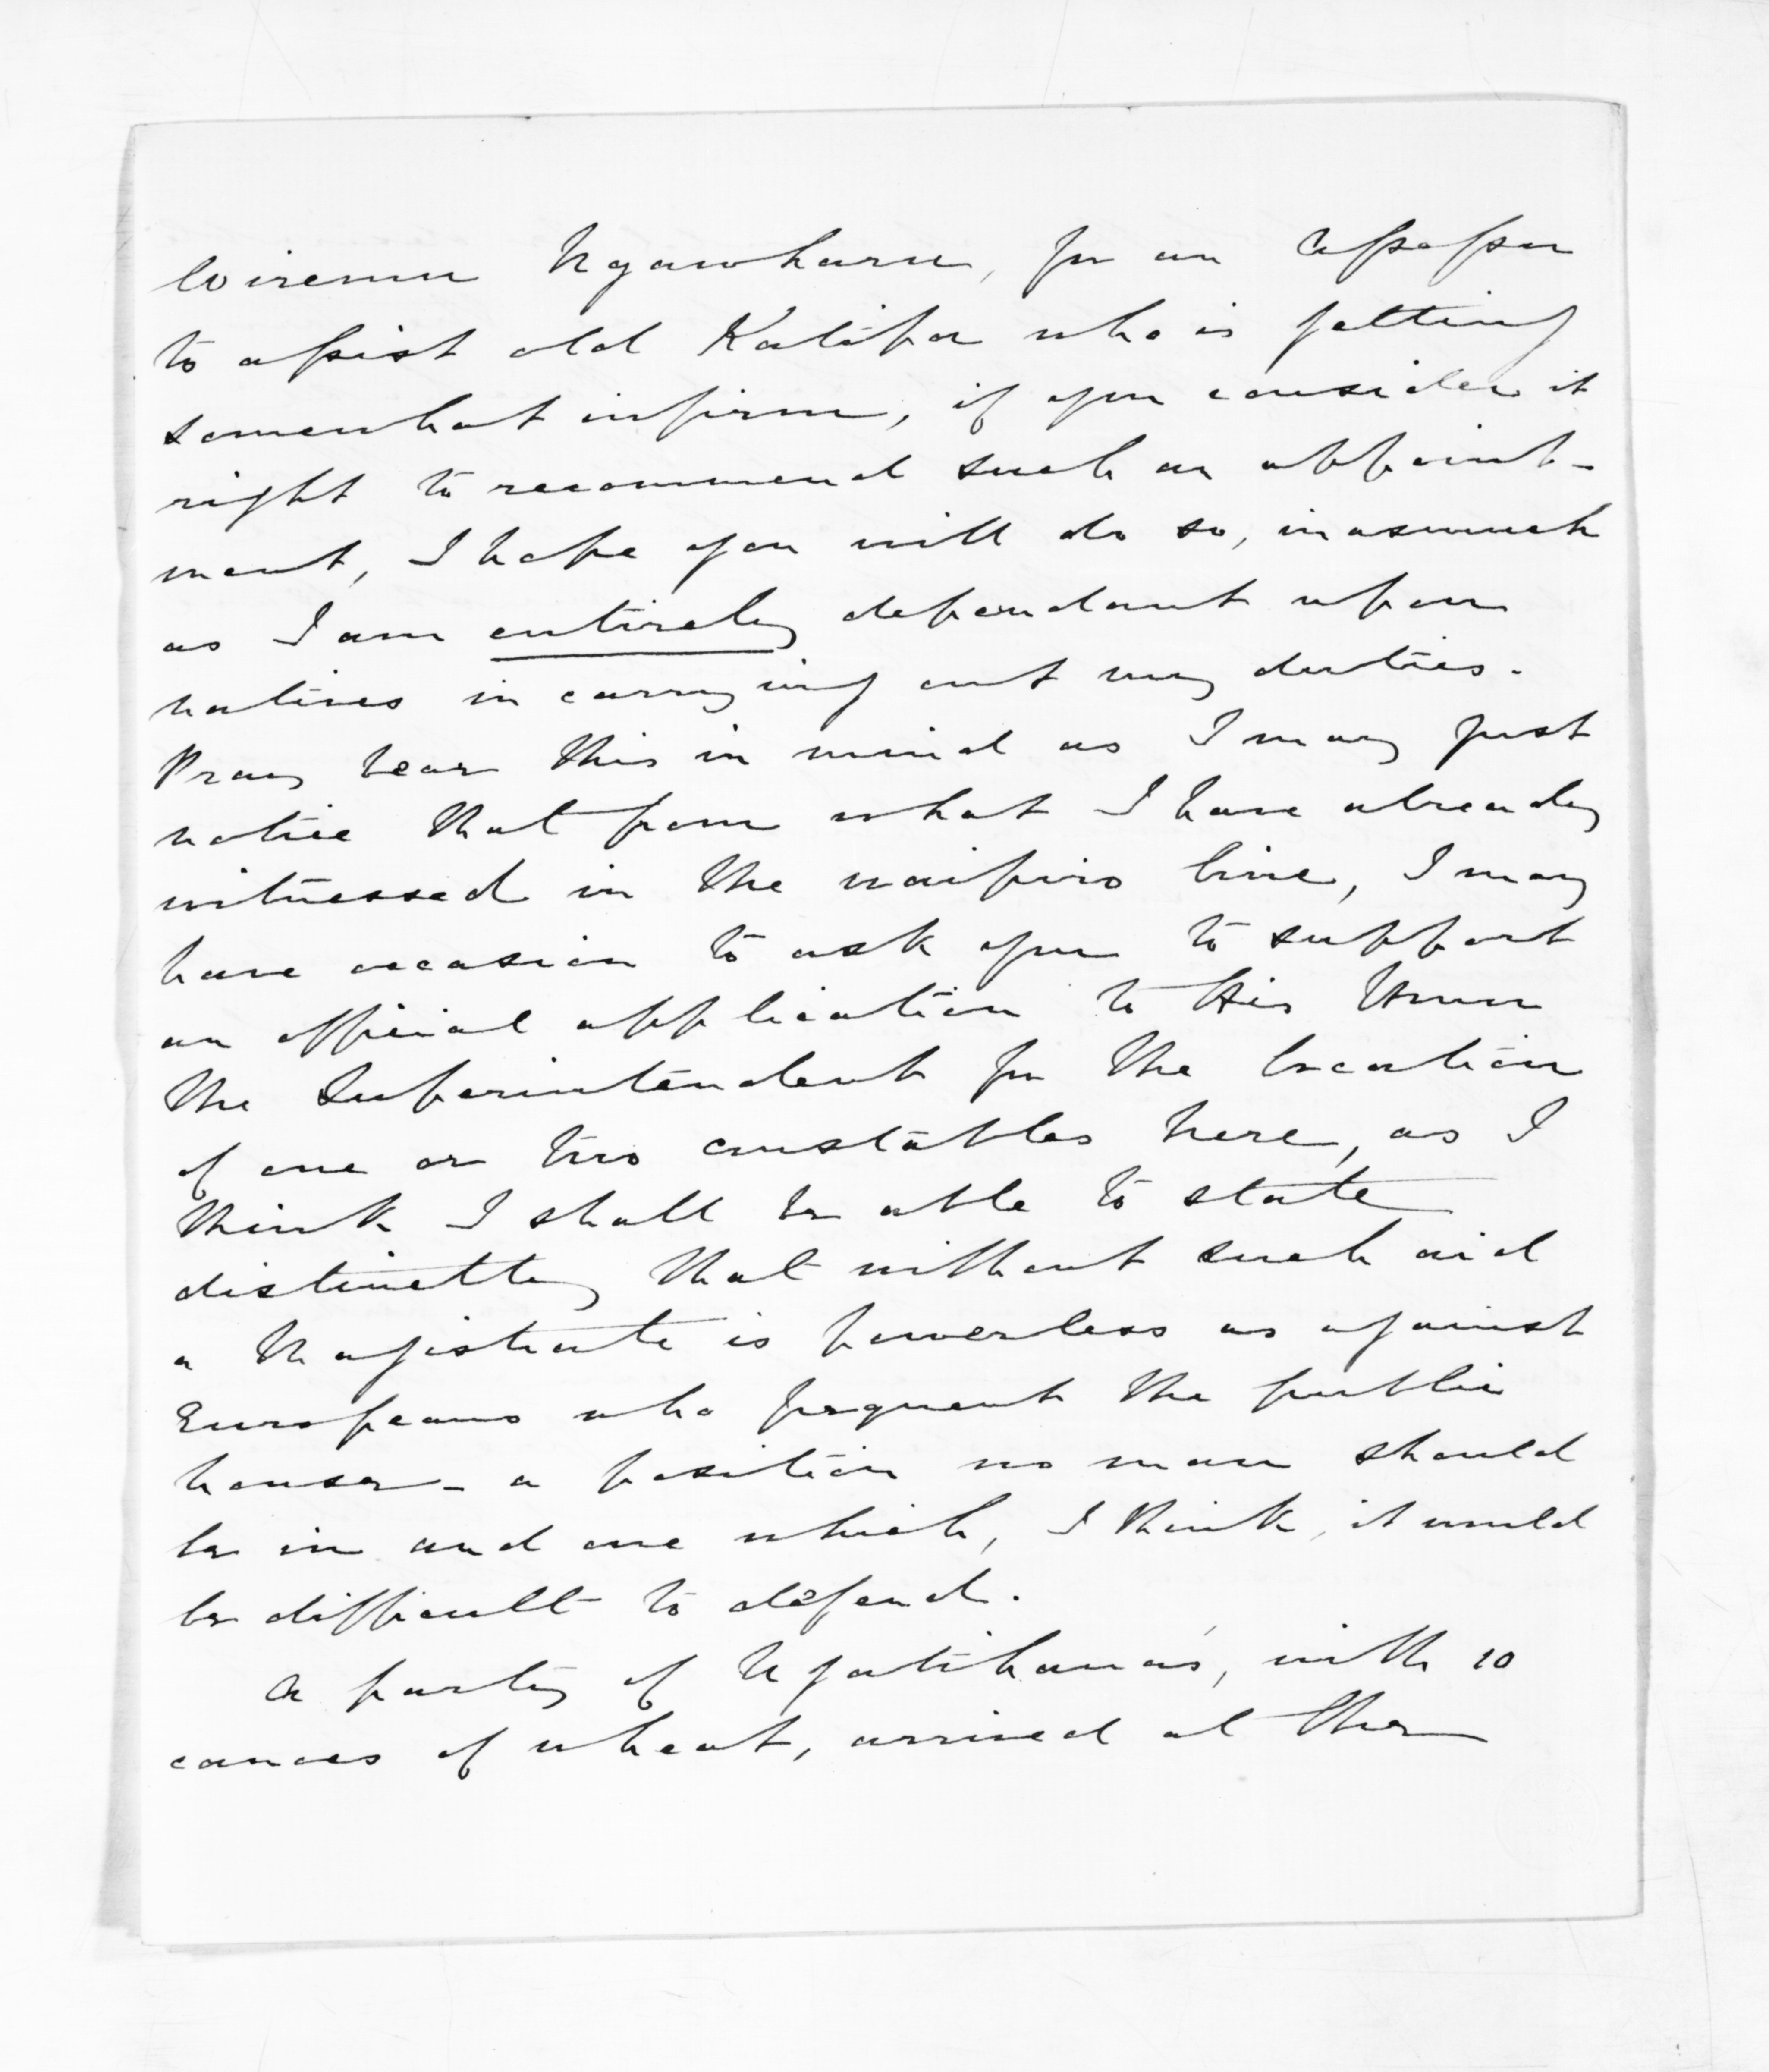 Wiremu Ngawharu, for an Assessor
to assist old Katipa who is getting
somewhat infirm, if you consider it
right to recommend such an appoint-
ment, I hope you will do so, inasmuch
as I am entirely dependant upon
natives in carrying out my duties.
Pray bear this in mind as I may just
notice that from what I have already
witnessed in the waipiro line, I may
have occasion to ask you to support
an official application to His Honor
the Superintendent for the location
of one or two constables here, as I
think I shall be able to state
distinctly that without such aid
a Magistrate is powerless as against
Europeans who frequent the public
houses - a position no man should
be in and one which, I think, it would
be difficult to defend.
A party of Ngatihaua's, with 10
canoes of wheat, arrived at the